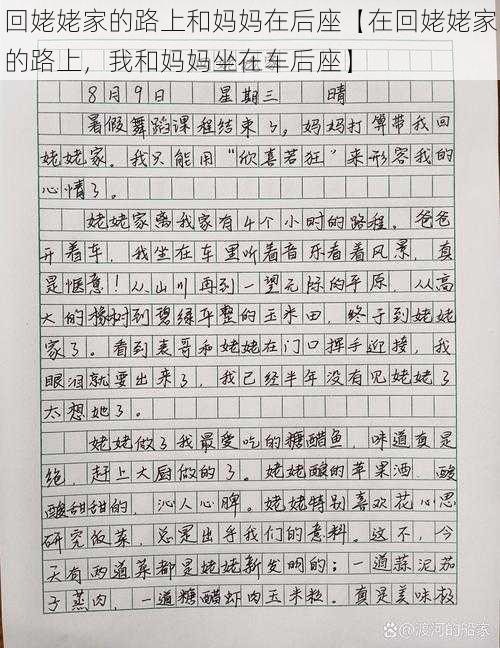 回姥姥家的路上和妈妈在后座【在回姥姥家
的路上，我和妈妈坐在车后座】
8月9日 星期三 晴
暑假舞蹈课程结束了，妈妈打算带我回
姥姥家。我只能用“欣喜若狂”来形容我的
心情了。
姥姥家离我家有4个小时的路程。爸爸
开着车，我坐在车里听着音乐看着风景，真
是惬意！从山川再到一望无际的平原，从高
大的杨树到碧绿平整的玉米田，终于到姥姥
家了。看到表哥和姥姥在门口挥手迎接，我
眼泪就要出来了，我已经半年没有见姥姥了
太想她了。
姥姥做了我最爱吃的糖醋鱼，味道真是
绝，赶上大厨做的了。姥姥酿的苹果酒，酸
酸甜甜的，沁人心脾。姥姥特别喜欢花心思
研究饭菜，总是出乎我们的意料。这不，今
天有两道菜都是姥姥新发明的；一道蒜泥茄
子蒸肉，一道糖醋虾肉玉米粒。真是美味极
知乎 @渡河的船家